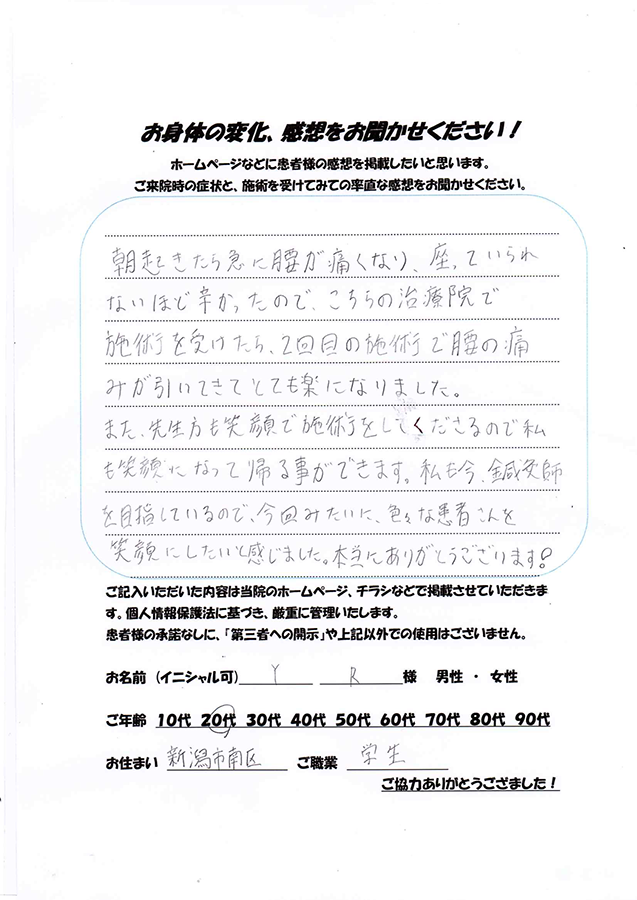 お身体の変化、感想をお聞かせください！
ホームページなどに患者様の感想を掲載したいと思います。
ご来院時の症状と、施術を受けてみての率直な感想をお聞かせください。
朝起きたら急に腰が痛くなり、座っていられ
ないほど辛かったので、こちらの治療院で
施術を受けたら、2回目の施術で腰の痛
みが引いてきてとても楽になりました。
また、先生方も笑顔で施術をしてくださるので私
も笑顔になって帰る事ができます。私も今、鍼灸師
を目指しているので、今回みたいに、色々な患者さんを
笑顔にしたいと感じました。本当にありがとうございます！
ご記入いただいた内容は当院のホームページ、チラシなどで掲載させていただきま
す。個人情報保護法に基づき、厳重に管理いたします。
患者様の承諾なしに、「第三者への開示」や上記以外での使用はございません。
お名前（イニシャル可） Y R 様 男性 ・ 女性
ご年齢 10代 20代 30代 40代 50代 60代 70代 80代 90代
お住まい 新潟市南区 ご職業 学生
ご協力ありがとうござました！